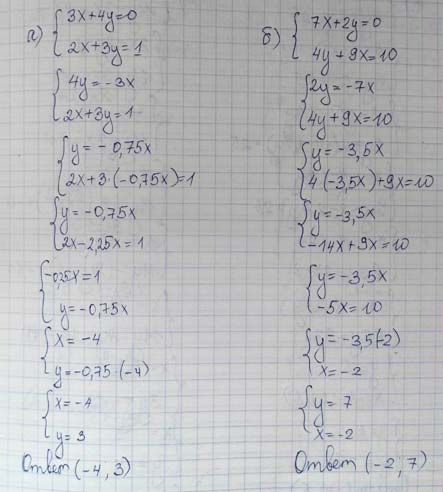 а) { 3x+4y=0
2x+3y=1
{ 4y=-3x
2x+3y=1
{ y=-0,75x
2x+3·(-0,75x)=1
{ y=-0,75x
2x-2,25x=1
{ -0,25x=1
y=-0,75x
{ x=-4
y=-0,75·(-4)
{ x=-4
y=3
Ответ (-4, 3)
б) { 7x+2y=0
4y+9x=10
{ 2y=-7x
4y+9x=10
{ y=-3,5x
4(-3,5x)+9x=10
{ y=-3,5x
-14x+9x=10
{ y=-3,5x
-5x=10
{ y=-3,5(-2)
x=-2
{ y=7
x=-2
Ответ (-2, 7)